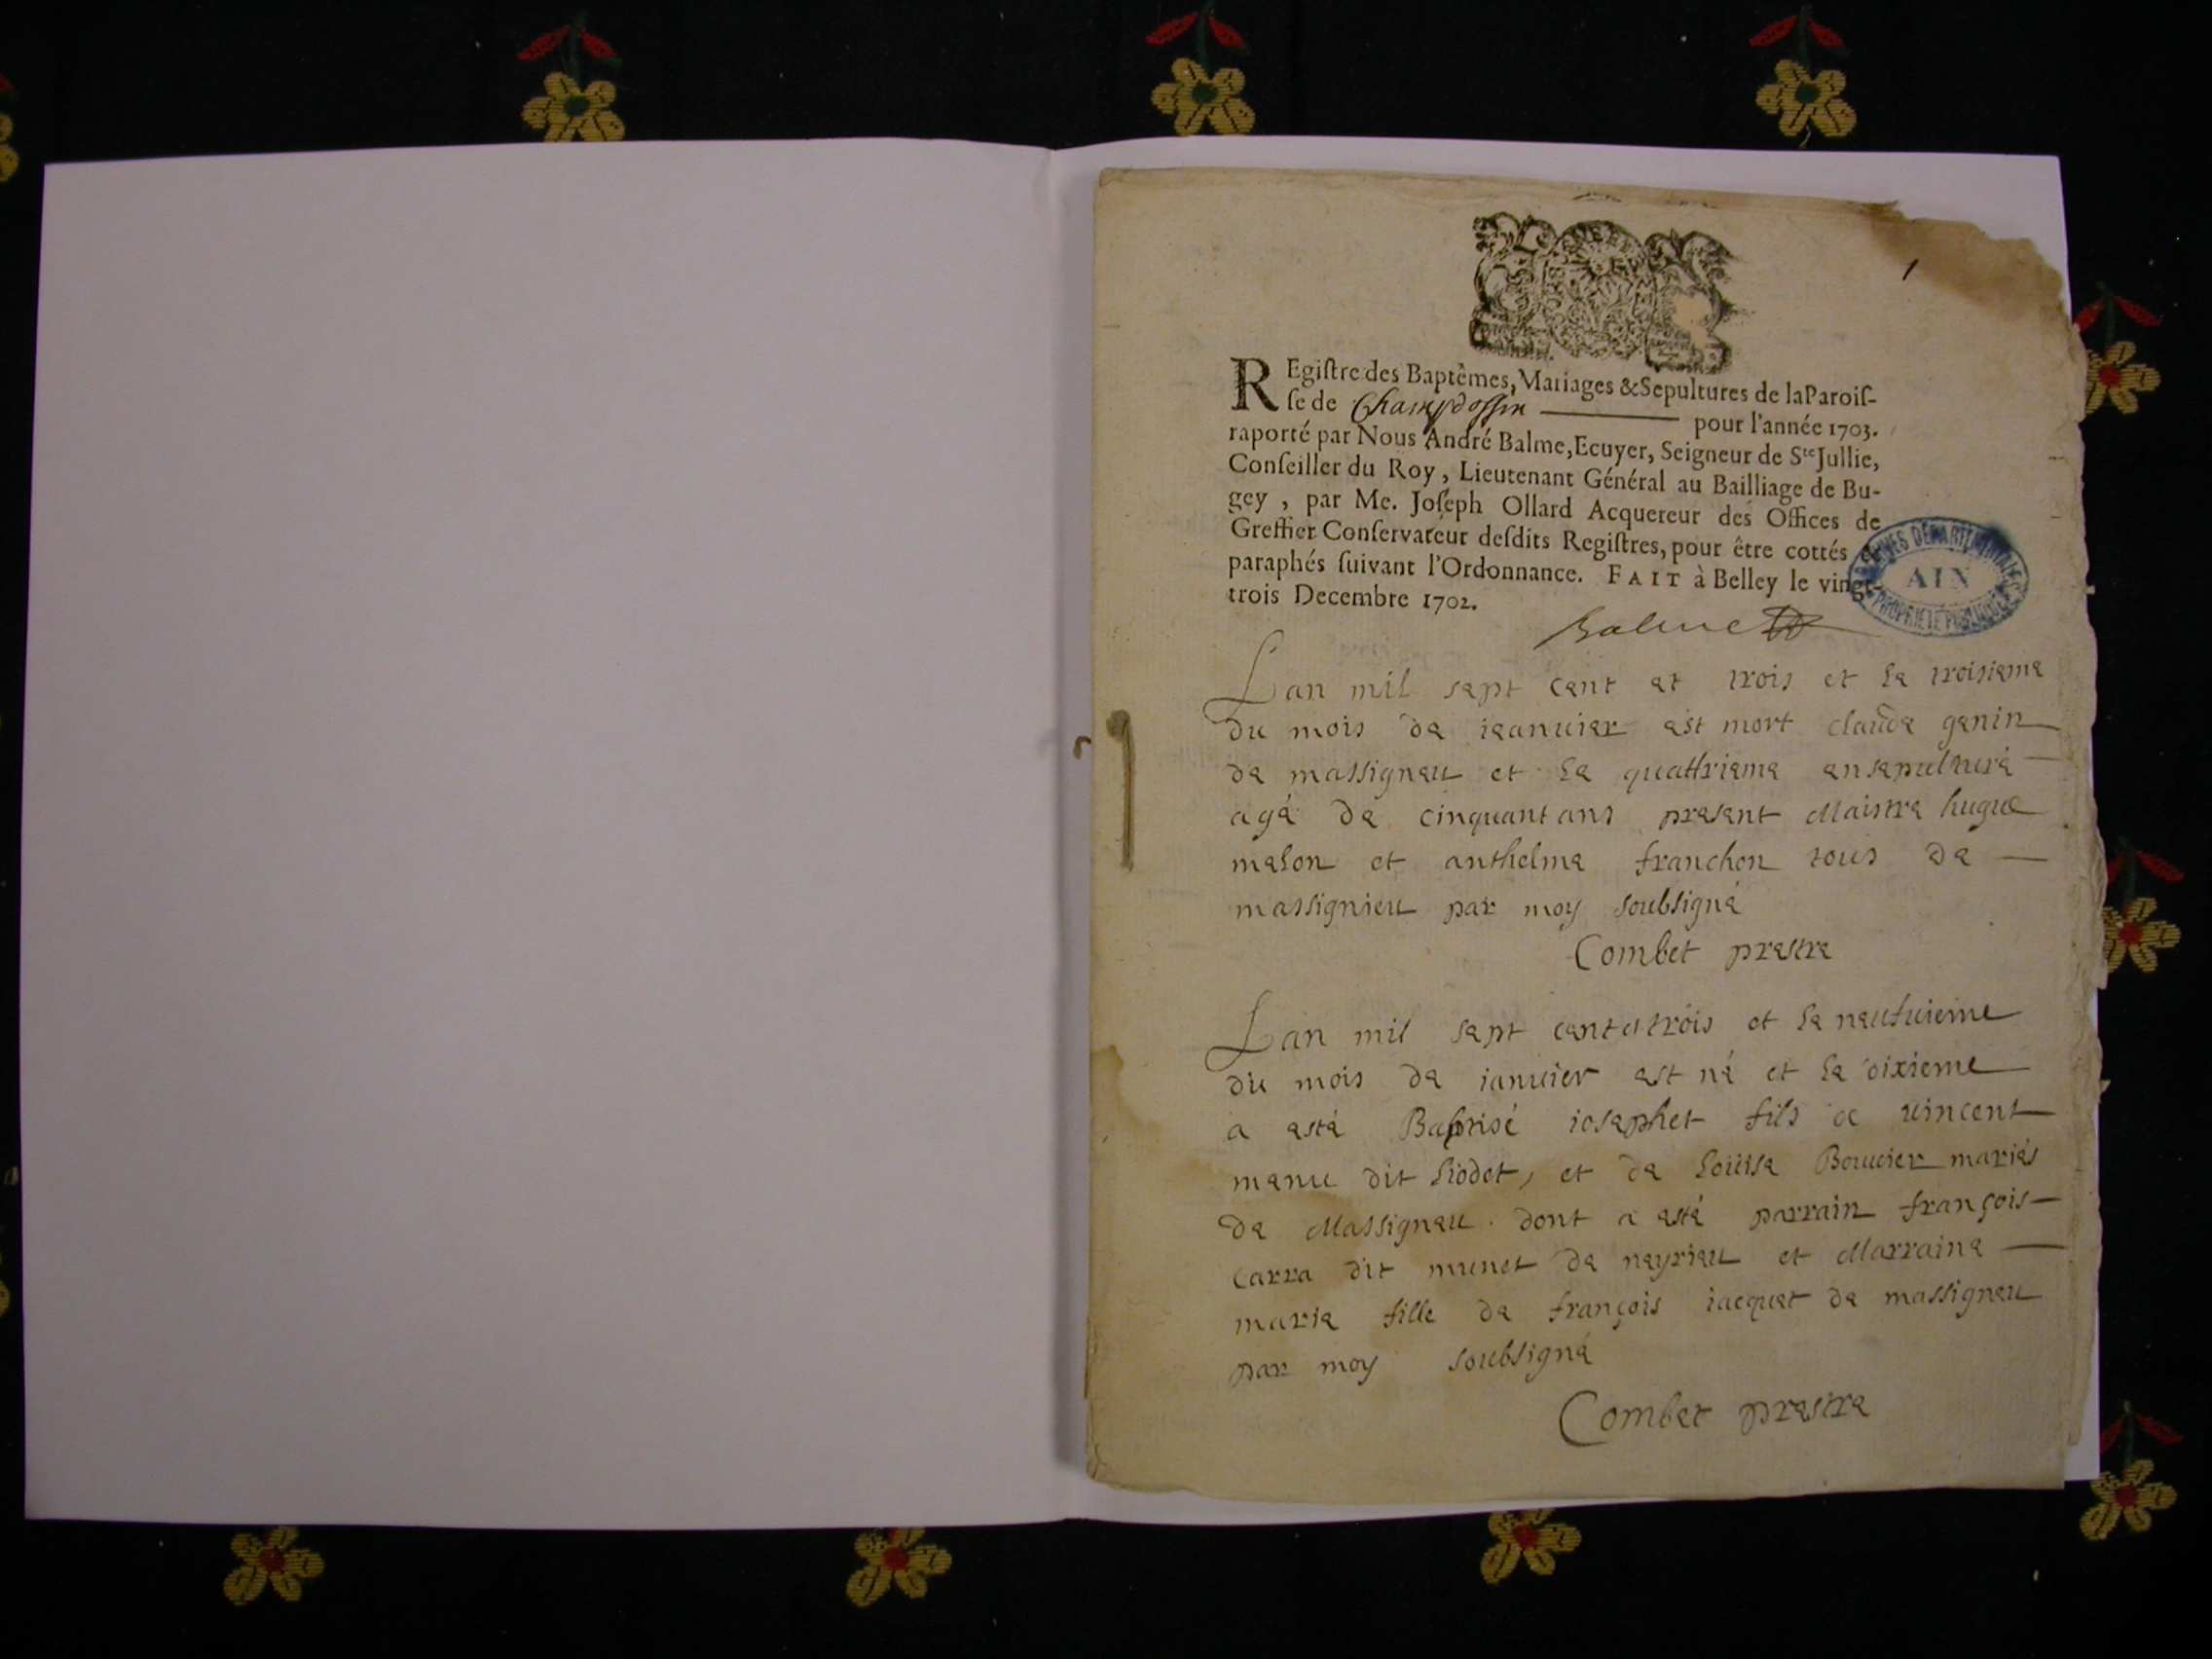 1
REgiſtre des Baptêmes, Mariages & Sepultures de la Paroiſ-
ſe de Champdossin pour l'année 1703.
raporté par Nous André Balme, Ecuyer, Seigneur de Ste Jullie,
Conſeiller du Roy, Lieutenant Général au Bailliage de Bu-
gey, par Me. Joſeph Ollard Acquereur des Offices de
Greffier Conſervateur deſdits Regiſtres, pour être cottés &
paraphés ſuivant l'Ordonnance. FAIT à Belley le vingt-
trois Decembre 1702.
ARCHIVES DÉPARTEMENTALES
AIN
PROPRIÉTÉ PUBLIQUE
Balme
Lan mil sept cent et trois et le troisieme
du mois de ieanuier est mort claude genin
de massigneu et le quattrieme ensepulturé
agé de cinquant ans present Maistre hugue
melon et anthelme franchon tous de
massignieu par moy soubsigné
Combet prestre
Lan mil sept cent et trois et le neufuieme
du mois de ianuier est né et le dixieme
a esté Baptisé iosephet fils de uincent
menu dit liodet, et de Louise Bouuier mariés
de Massigneu dont a esté parrain françois
carra dit munet de neyrieu et Marraine
marie fille de françois iacquet de massigneu
par moy soubsigné
Combet prestre